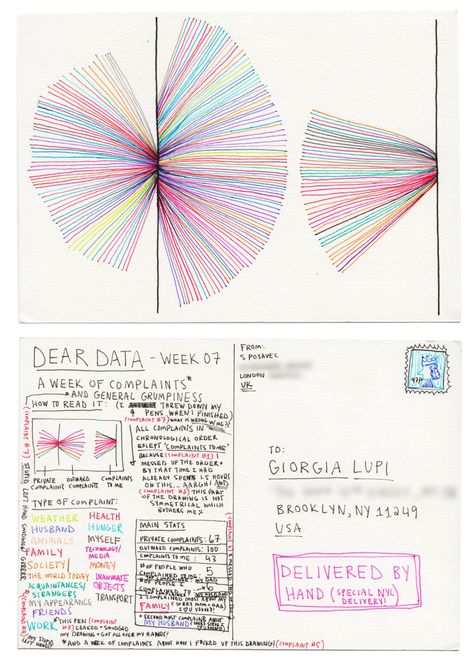 DEAR DATA - WEEK 07
A WEEK OF COMPLAINTS*
AND GENERAL GRUMPINESS
HOW TO READ IT:
(I THREW DOWN MY
4 PENS WHEN I FINISHED)
(COMPLAINT #7) WHAT IS WRONG W/ ME?
ALL COMPLAINTS IN
CHRONOLOGICAL ORDER
EXCEPT 'COMPLAINTS TO ME'
BECAUSE (COMPLAINT #1) I
MESSED UP THE ORDER +
BY THAT TIME I HAD
ALREADY SPENT 1.5 HOURS
ON THIS... AARGH! AND
(COMPLAINT #2) THIS PART
OF THE DRAWING IS NOT
SYMMETRICAL WHICH
BOTHERS ME
PRIVATE COMPLAINTS
OUTWARD COMPLAINTS
COMPLAINTS TO ME
TYPE OF COMPLAINT:
WEATHER
HUSBAND
ANIMALS
FAMILY
SOCIETY/
THE WORLD TODAY
ACQUAINTANCES/
STRANGERS
MY APPEARANCE
FRIENDS
WORK
HEALTH
HUNGER
MYSELF
TECHNOLOGY/
MEDIA
MONEY
INANIMATE
OBJECTS
TRANSPORT
MAIN STATS
PRIVATE COMPLAINTS: 67
OUTWARD COMPLAINTS: 100
COMPLAINTS TO ME: 43
# OF PEOPLE WHO
COMPLAINED TO ME: 5
MOST ABOUT MY
FAMILY (SORRY MOM + DAD,
I LOVE YOU!)
SECOND MOST COMPLAINED ABOUT:
MY HUSBAND
*THIS PEN (COMPLAINT
#7) LEAKED + SMUDGED
MY DRAWING + GOT ALL OVER MY HANDS!
*AND A WEEK OF COMPLAINTS ABOUT HOW I F*CKED UP THIS DRAWING! (COMPLAINT #5)
FROM:
S POSAVEC
LONDON
UK
97P
TO:
GIORGIA LUPI
BROOKLYN, NY 11249
USA
DELIVERED BY
HAND (SPECIAL NYC
DELIVERY!)